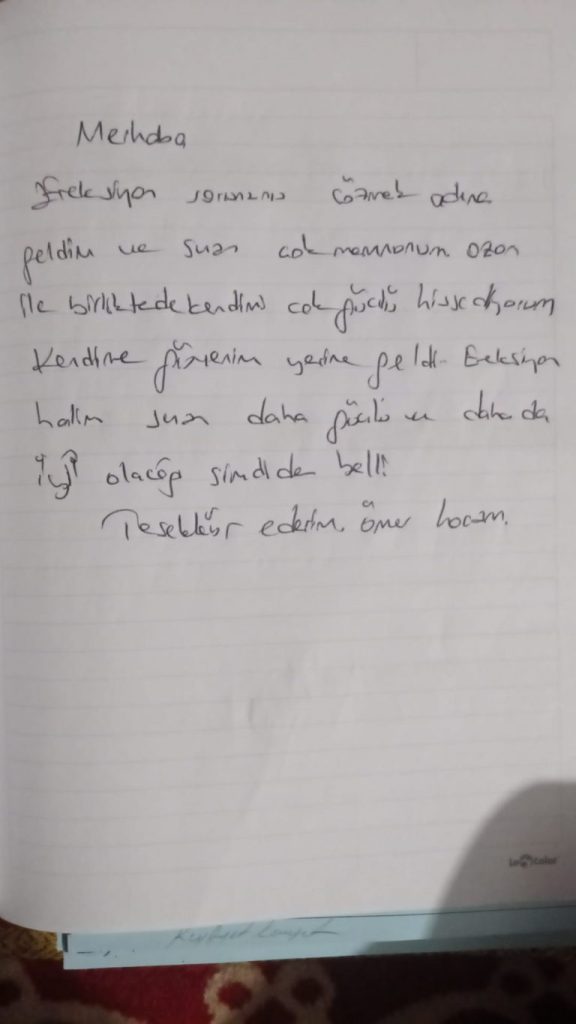 Merhaba
Ereksiyon sorunumu çözmek adına
geldim ve şuan çok memnunum ozon
ile birliktede kendimi çok güçlü hissediyorum
Kendime güvenim yerine geldi. Ereksiyon
halim şuan daha güçlü ve daha da
iyi olacağı şimdiden belli
Teşekkür ederim Ömer hocam.